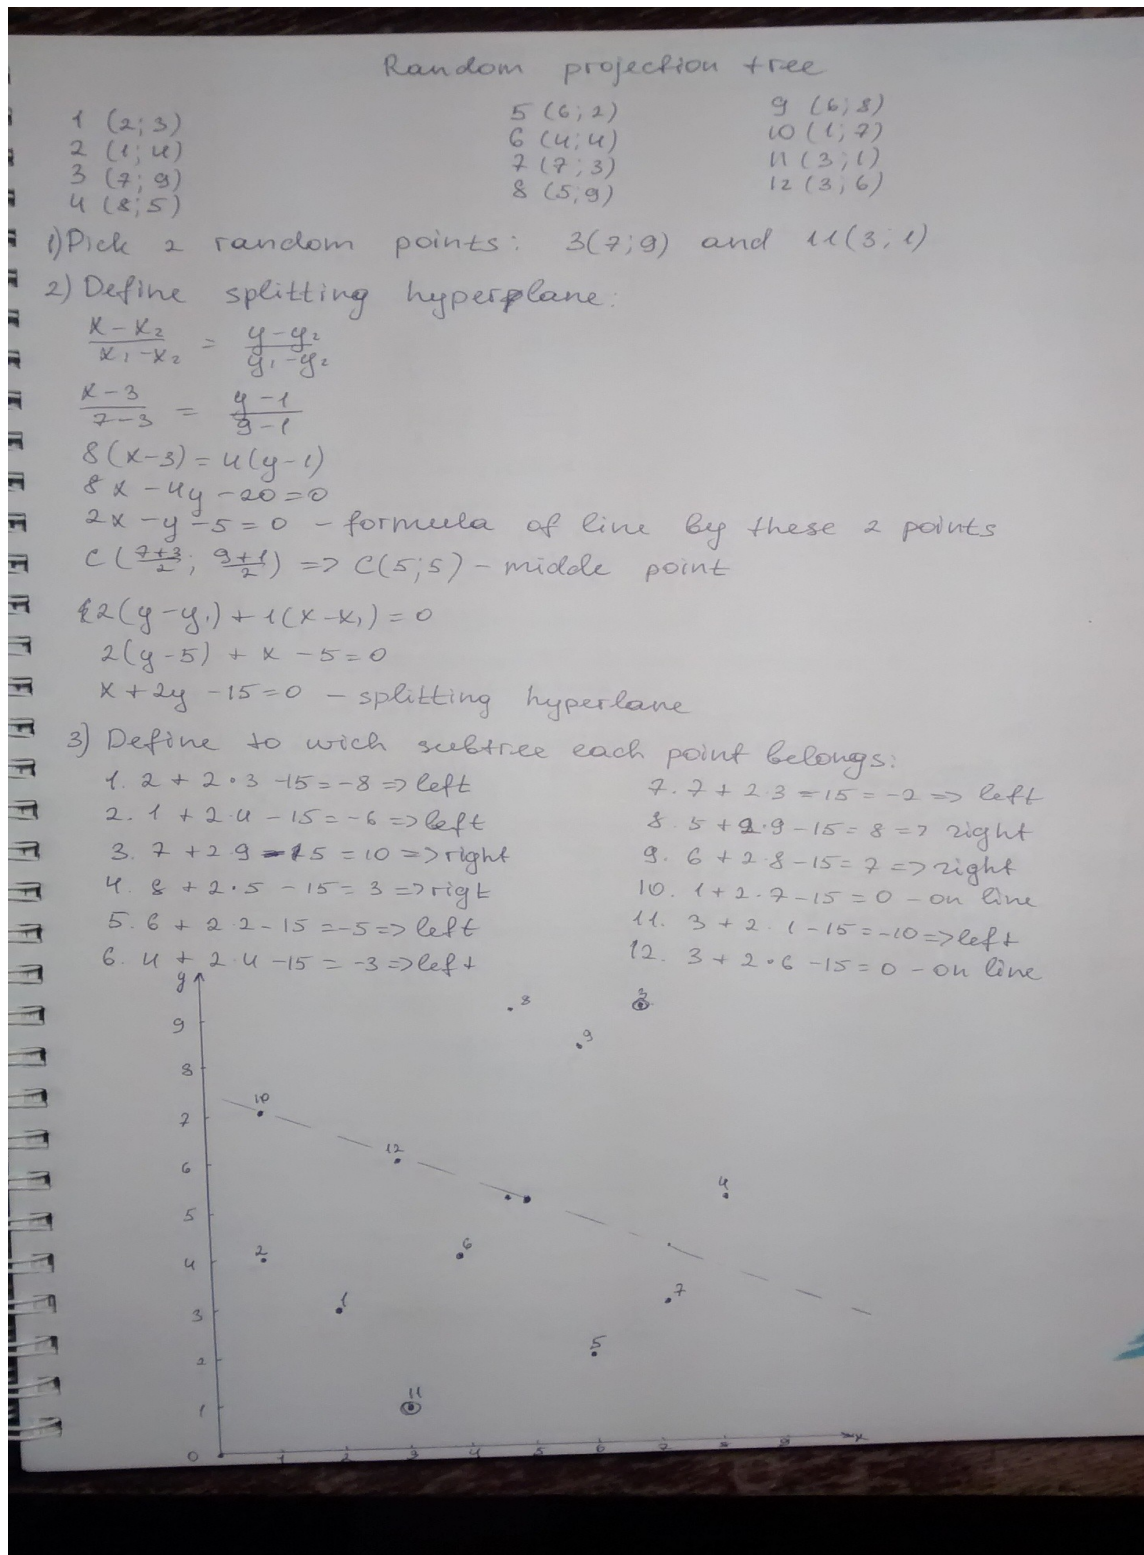 Random projection tree
1 (2; 3)
2 (1; 4)
3 (7; 9)
4 (8; 5)
5 (6; 2)
6 (4; 4)
7 (7; 3)
8 (5; 9)
9 (6; 8)
10 (1; 7)
11 (3; 1)
12 (3; 6)
1) Pick 2 random points: 3(7; 9) and 11(3; 1)
2) Define splitting hyperplane:
(x - x₂)/(x₁ - x₂) = (y - y₂)/(y₁ - y₂)
(x - 3)/(7 - 3) = (y - 1)/(9 - 1)
8(x - 3) = 4(y - 1)
8x - 4y - 20 = 0
2x - y - 5 = 0 - formula of line by these 2 points
C ((7+3)/2; (9+1)/2) => C(5; 5) - middle point
2(y - y₁) + 1(x - x₁) = 0
2(y - 5) + x - 5 = 0
x + 2y - 15 = 0 - splitting hyperlane
3) Define to wich subtree each point belongs:
1. 2 + 2·3 - 15 = -8 => left
2. 1 + 2·4 - 15 = -6 => left
3. 7 + 2·9 - 15 = 10 => right
4. 8 + 2·5 - 15 = 3 => rigt
5. 6 + 2·2 - 15 = -5 => left
6. 4 + 2·4 - 15 = -3 => left
7. 7 + 2·3 - 15 = -2 => left
8. 5 + 2·9 - 15 = 8 => right
9. 6 + 2·8 - 15 = 7 => right
10. 1 + 2·7 - 15 = 0 - on line
11. 3 + 2·1 - 15 = -10 => left
12. 3 + 2·6 - 15 = 0 - on line
y
8
3
9
9
8
10
7
12
6
4
5
6
2
4
7
1
3
5
2
11
1
x
0 1 2 3 4 5 6 7 8 9